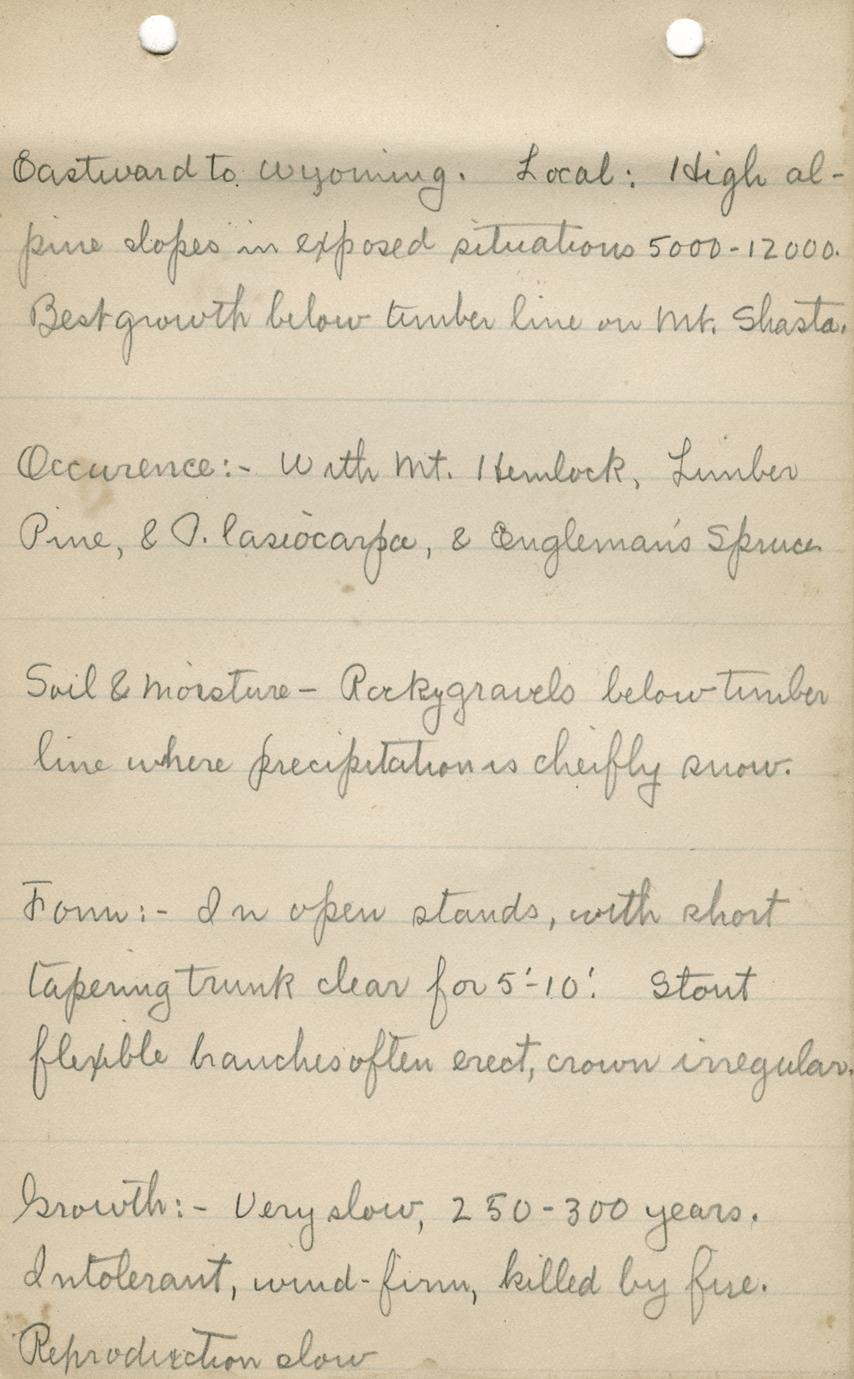 Eastward to Wyoming. Local: High al-
pine slopes in exposed situations 5000-12000.
Best growth below timber line on Mt. Shasta.
Occurence:- With Mt. Hemlock, Limber
Pine, & P. lasiocarpa, & Engleman's Spruce
Soil & Moisture - Rocky gravels below timber
line where precipitation is cheifly snow.
Form:- In open stands, with short
tapering trunk clear for 5'-10'. Stout
flexible branches often erect, crown irregular.
Growth:- Very slow, 250-300 years.
Intolerant, wind-firm, killed by fire.
Reproduction slow